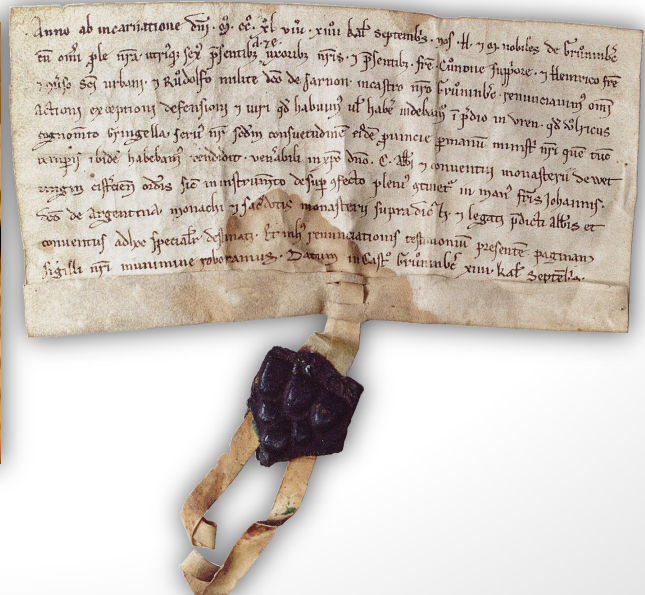 Anno ab incarnatione dnī · M · cc · xl viiii · xiiii kal septembs · nos · H · ⁊ M nobiles de Grůninbc
cū omī ple nrā utriq sex psentibz uxoribz nris · ⁊ psentibz · frē · Cůnone · ⁊ Heinrico frē
sci urbani ⁊ Růdolfo milite dcō de farnon · incastro nrō Grůninbc · renunciavim omī
Actioni exceptioni defensioni ⁊ iuri qd habuim ul habe uidebam ī pdio in vren · qd vlricus
cognomto Gringella · seru nr scdm consuetudinē puincie pmanum ministri nri quē tunc
tempis ibidē habebam vendidit · venabili inxpo dno · C · Abbi ⁊ conventui monasterii dewet
tingin cistcien ordis sic ininstrumto desup confecto pleni gtinet in man fris Johannis ·
dco de Argentina · monachi ⁊ sacdotis monasterii supradicti · ⁊ legati pdicti Abbis et
conventus adhoc specialr destinati · Et inhui renunciationis testimonium presentē paginam
sigilli nri munimine roboramus · Datum in Cast Grůninbc xiiii · kal Septēbs ·